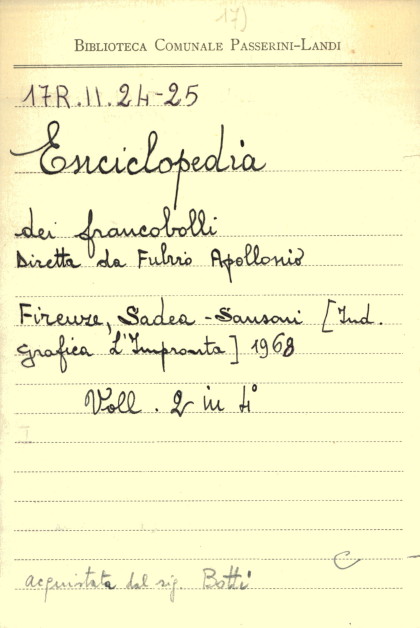 17)
BIBLIOTECA COMUNALE PASSERINI-LANDI
17R.II.24-25
Enciclopedia
dei francobolli
Diretta da Fulvio Apollonio
Firenze, Sadea-Sansoni [Ind.
grafica L'Impronta] 1968
Voll. 2 in 4°
C
acquistata dal sig. Botti